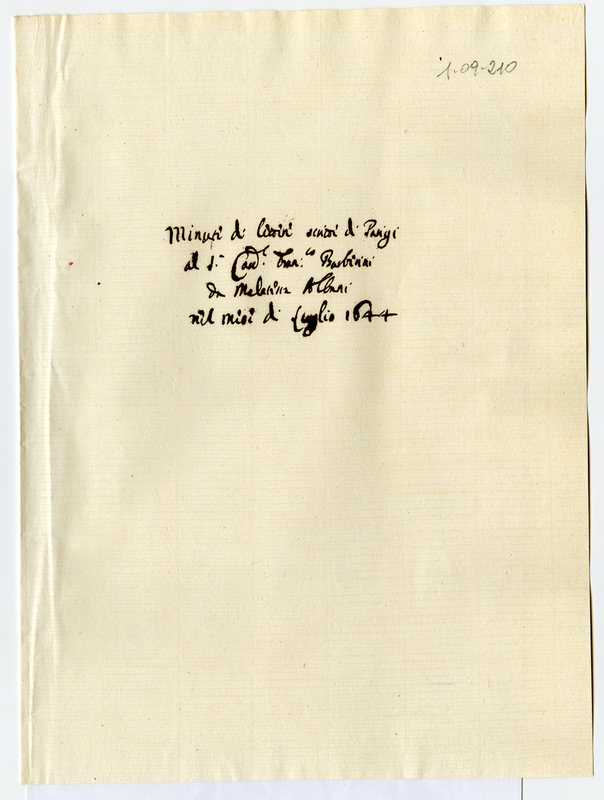 1-09-210
Minute di lettere scritte di Parigi
al S.r Card.l Fran.co Barberini
da Malatesta Albani
nel mese di Luglio 1644